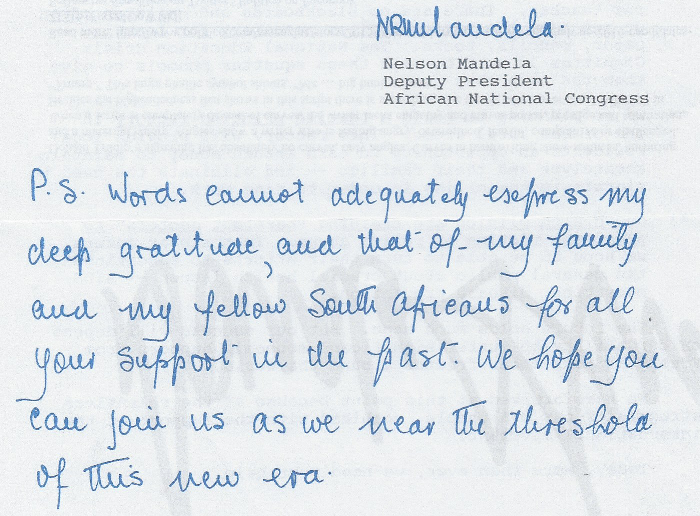 NRMandela.
Nelson Mandela
Deputy President
African National Congress
P.S. Words cannot adequately express my
deep gratitude, and that of my family
and my fellow South Africans for all
your support in the past. We hope you
can join us as we near the threshold
of this new era.